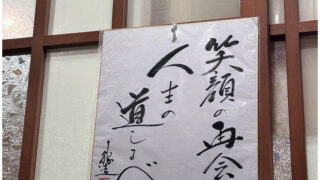 笑顔の再会
人生の
道しるべ